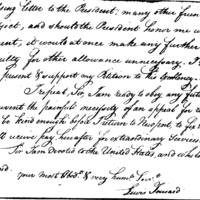 letter to the President, many other from
ject, and should the President honor me w
ent, it would at once make any further
culty for other allowance unnecessary. I
present & support my Petition to his Excellency.
I repeat, Sir, I am ready to obey any futur
event the painful necessity of an appeal for re
be kind enough before I return to Newport, to fix
ll receive pay hereafter for extraordinary Services.
Sir I am Devoted to the United States, and wh
your most Obdt. & very humb. Servt.
Lewis